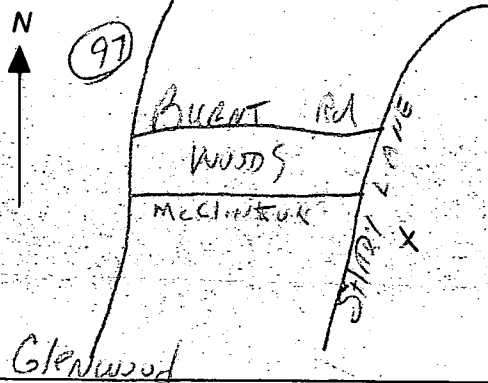 N
97
BURNT Rd
WOODS
McClintuk
SHADY LANE
X
Glenwood